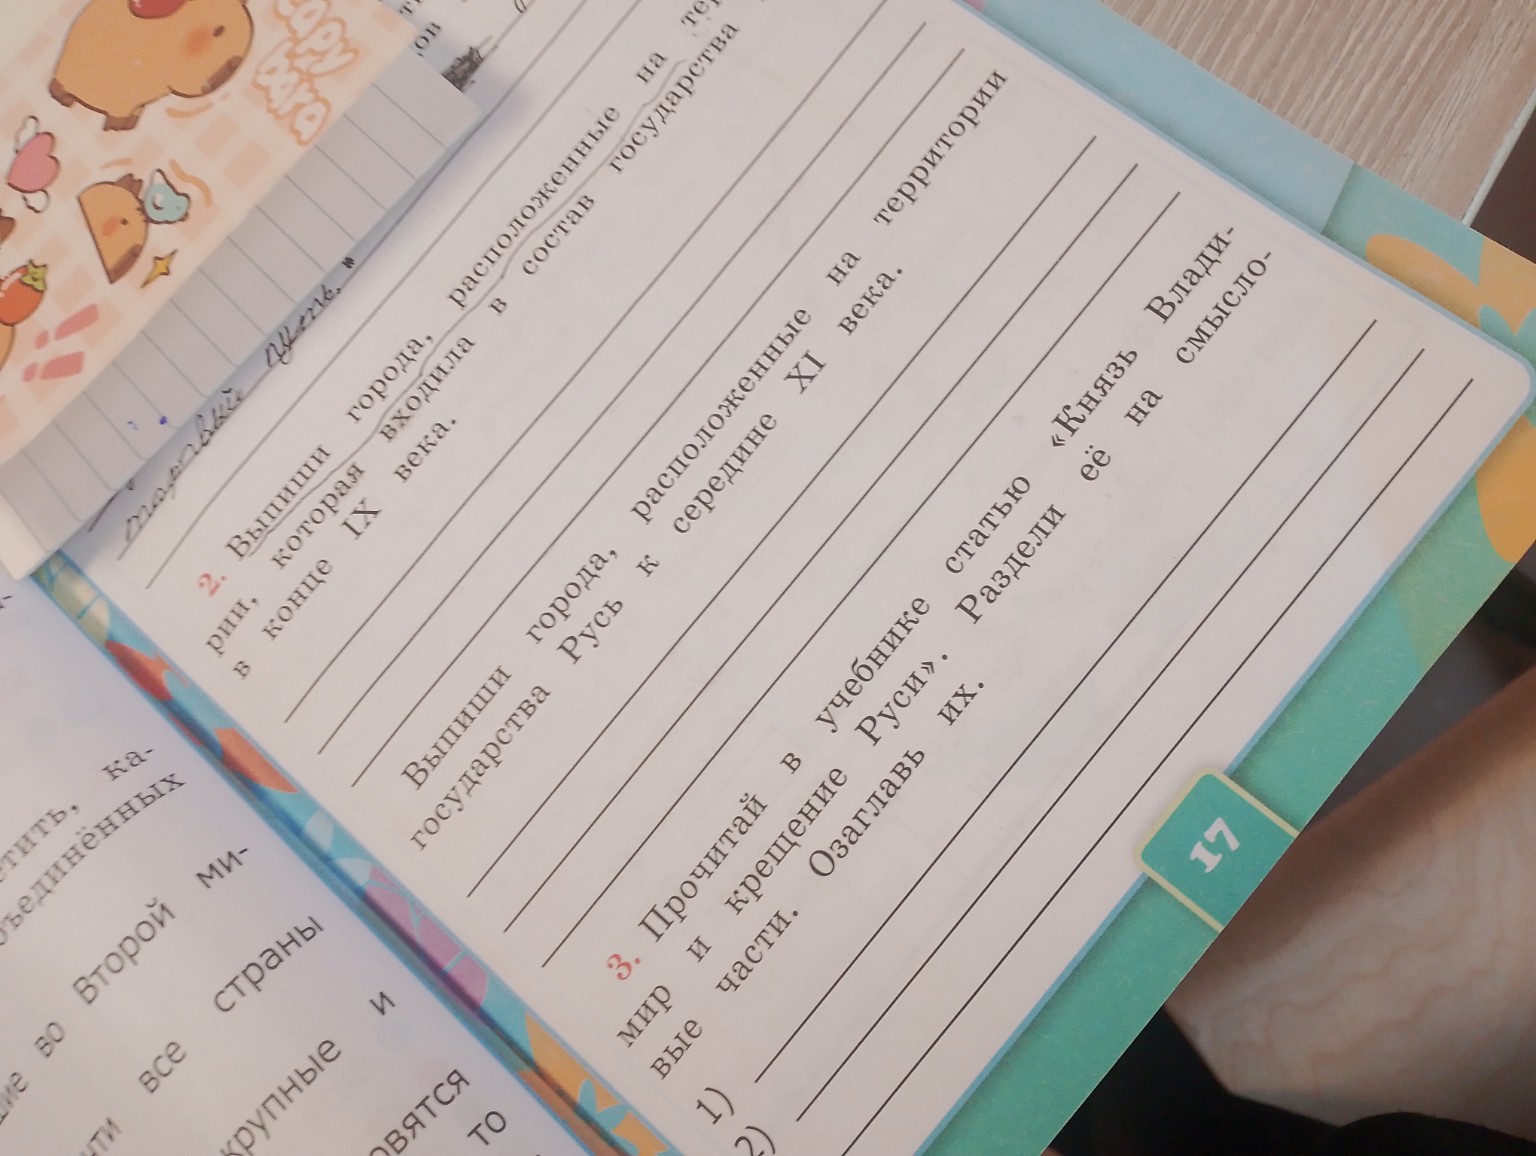 capy
bara
торговый путь."
2. Выпиши города, расположенные на
рии, которая входила в состав государства
в конце IX века.
Выпиши города, расположенные на территории
государства Русь к середине XI века.
3. Прочитай в учебнике статью «Князь Влади-
мир и крещение Руси». Раздели её на смысло-
вые части. Озаглавь их.
1)
2)
17
ка-
объединённых
во Второй ми-
все страны
крупные и
то